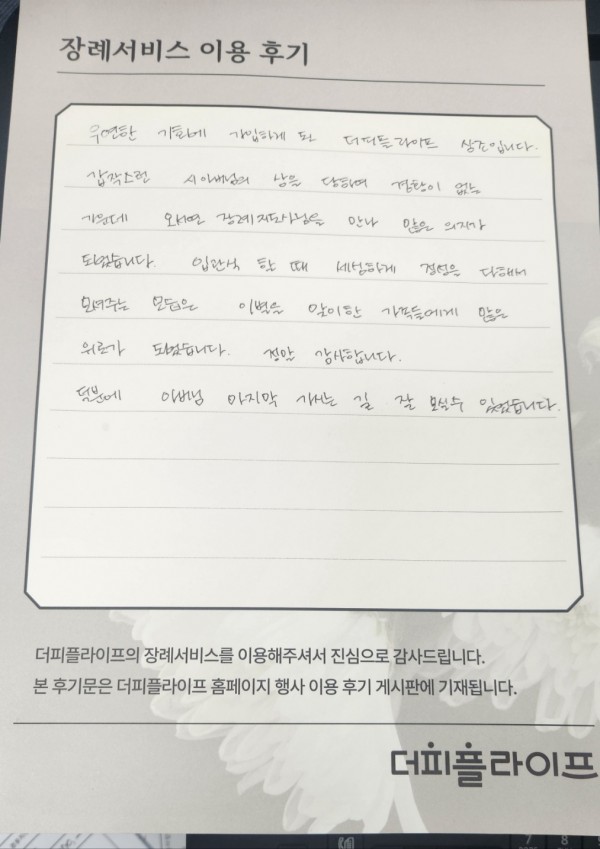 장례서비스 이용 후기
우연한 기회에 가입하게 된 더피플라이프 상조입니다.
갑작스런 시아버님의 상을 당하여 경황이 없는
가운데 오셔연 장례지도사님을 만나 많은 의지가
되었습니다. 입관식 할 때 세심하게 정성을 다해서
모셔주는 모습은 이별을 맞이한 가족들에게 많은
위로가 되었습니다. 정말 감사합니다.
덕분에 아버님 마지막 가시는 길 잘 모실수 있었습니다.
더피플라이프의 장례서비스를 이용해주셔서 진심으로 감사드립니다.
본 후기문은 더피플라이프 홈페이지 행사 이용 후기 게시판에 기재됩니다.
더피플라이프
7 8